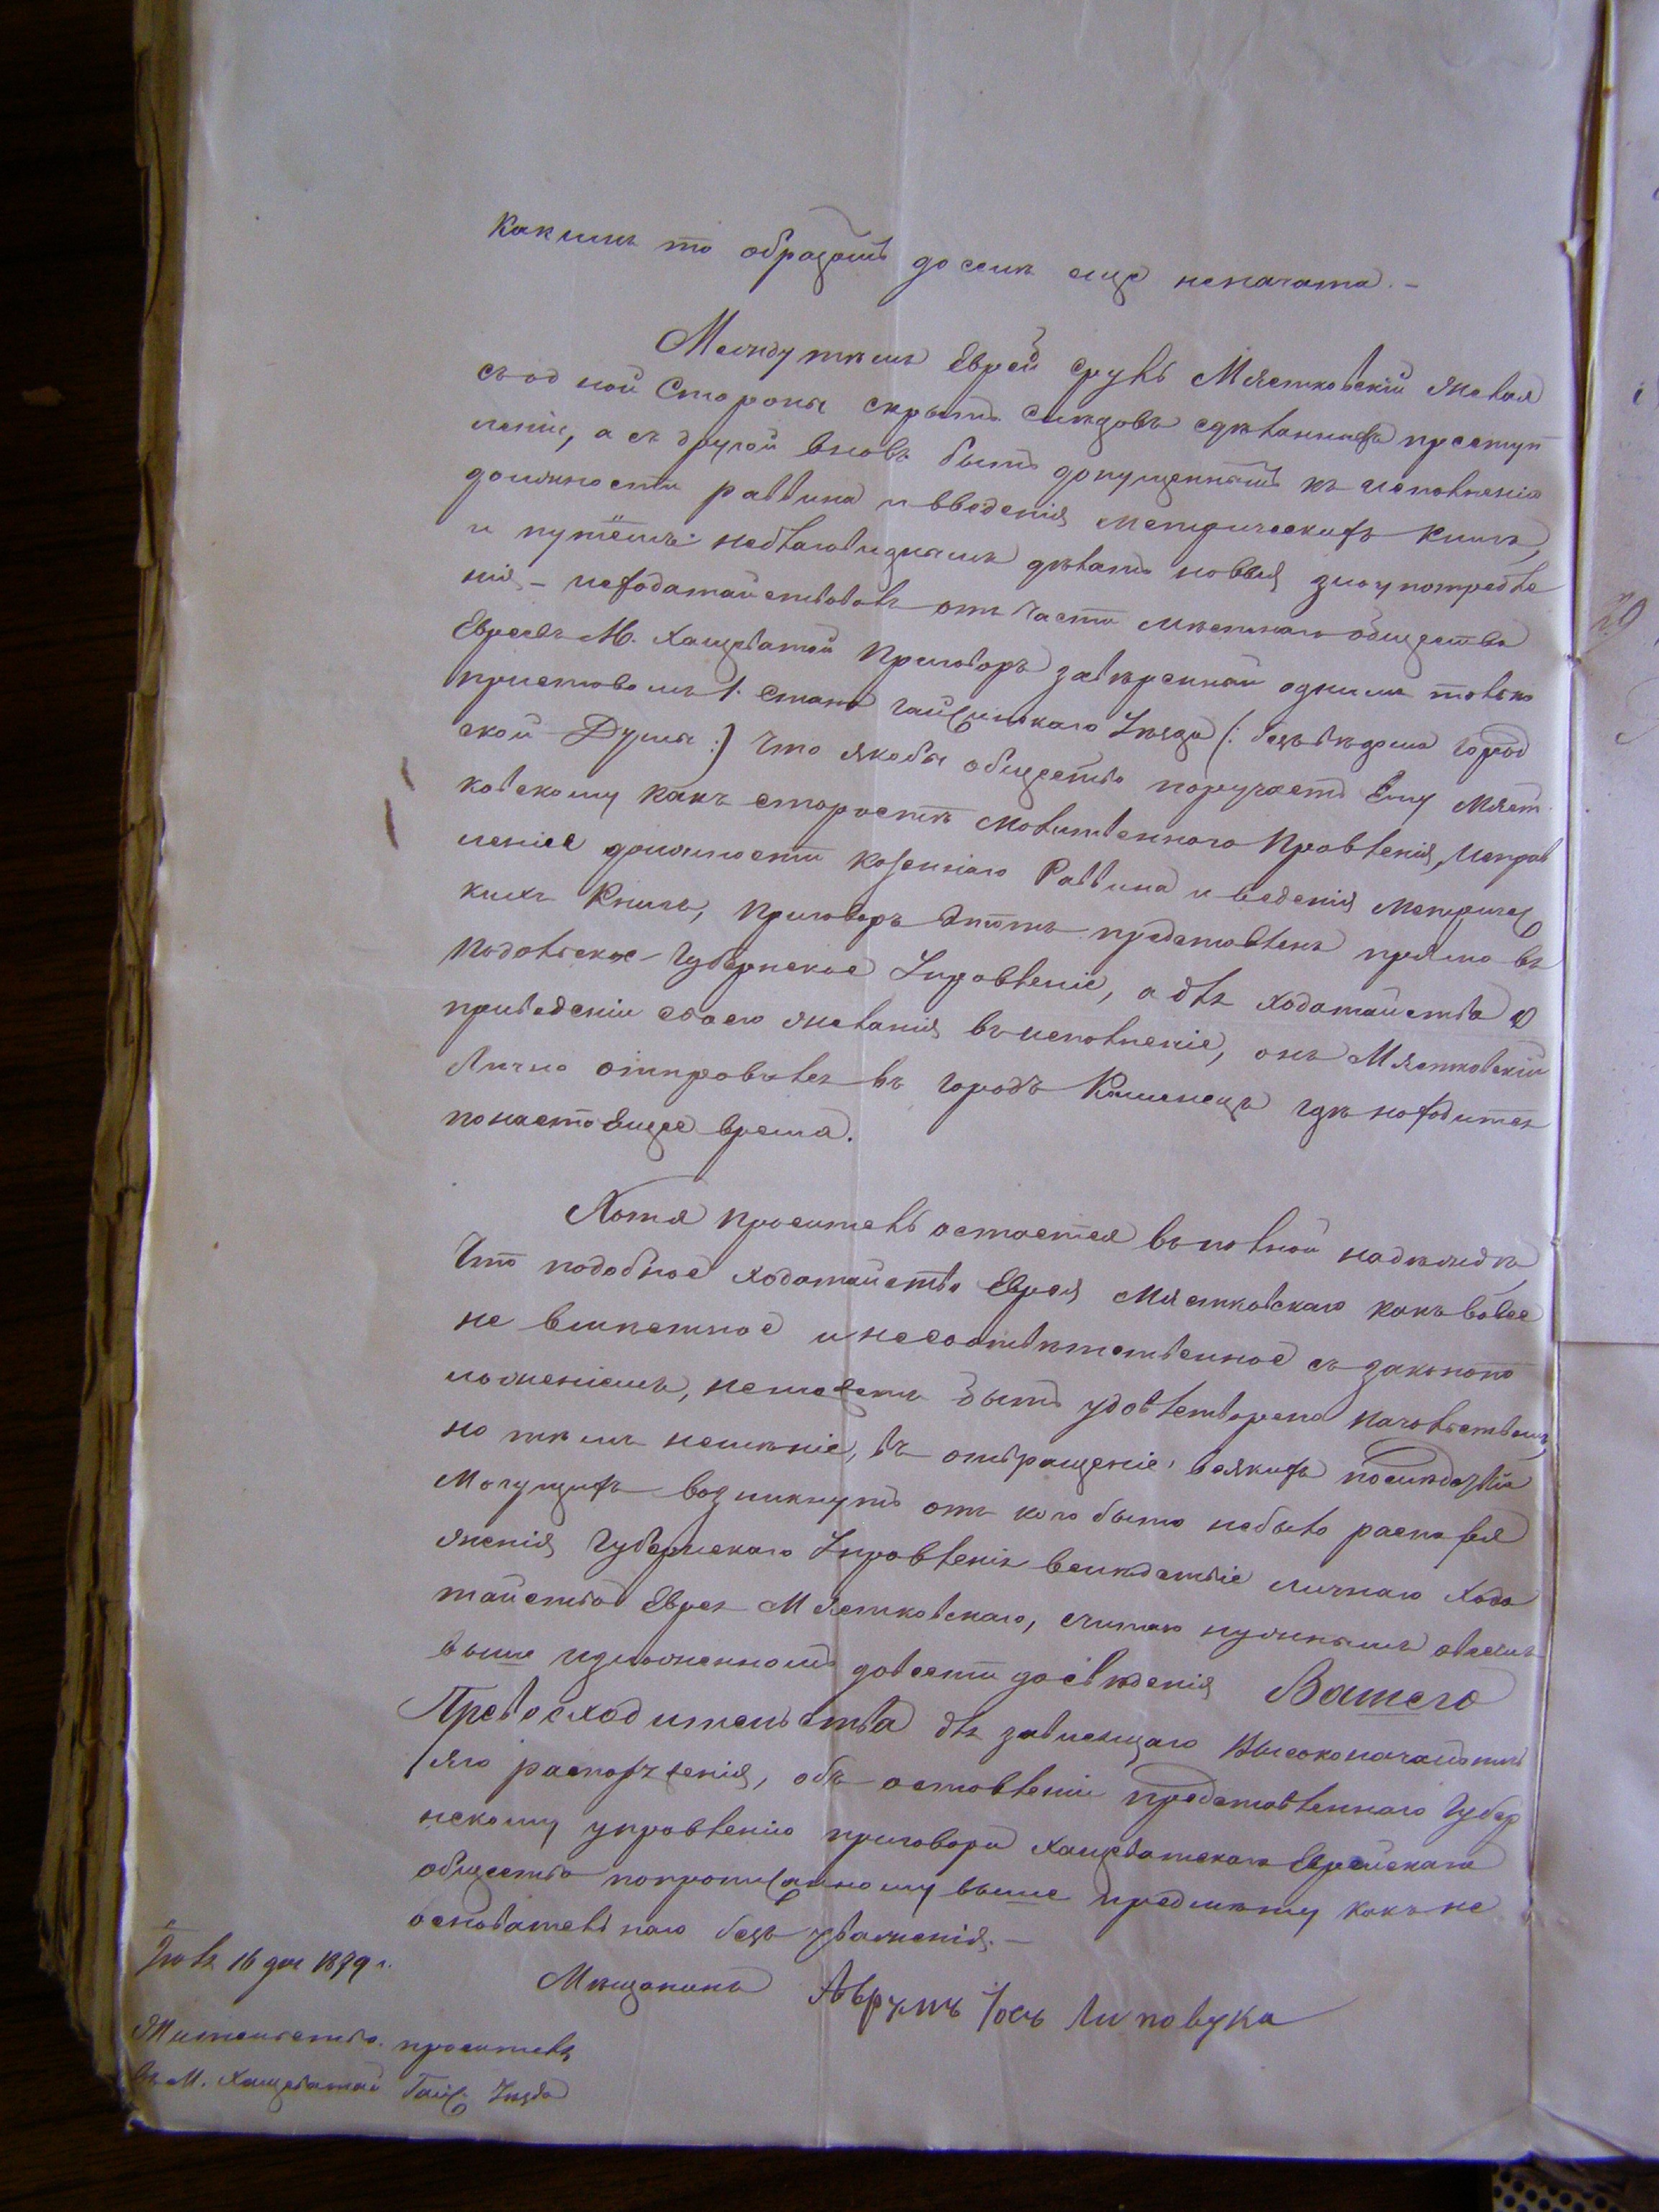 Какимъ то образомъ до сихъ еще неначата. —
Между тѣмъ Еврей Сруль Мястковскій желая
съ одной Стороны скрыть слѣдовъ сдѣланныхъ преступ
леній, а съ другой вновь быть допущеннымъ къ исполненію
должности раввина и введенія метрическихъ книгъ,
и путёмъ неблаговиднымъ дѣлать новыя злоупотребле
нія — исходатайствовалъ отъ части мѣстнаго общества
Евреевъ М. Хащеватой Приговоръ завѣренный однимъ только
приставомъ 1. стана Гайсинскаго Уѣзда (: безъ вѣдома Город
ской Думы :) что якобы общество поручаетъ Ему Мяст
ковскому какъ старостѣ молитвенного Правленія, исправ
леніе должности Казеннаго Раввина и ведения Метричес
кихъ Книгъ, Приговоръ этотъ представленъ прямо въ
Подольское Губернское Управленіе, а для ходатайства о
приведеніи своего желанія въ исполненіе, онъ Мястковскій
Лично отправился въ городъ Каменецъ гдѣ находится
по настоящее время.
Хотя проситель остается въ полной надеждѣ,
Что подобное ходатайство Еврея Мястковскаго какъ вовсе
не вмѣстное и несоответственное съ законопо
ложеніемъ, неможетъ быть удовлетворено начальствомъ,
но тѣмъ неменѣе, въ отвращеніе всякихъ послѣдствій
Могущихъ возникнуть отъ кого бы то небыло распоря
женія Губернскаго Управленія вслѣдствіе личнаго хода
тайства Еврея Мястковскаго, считаю нужнымъ о всемъ
выше изложенномъ довести до свѣденія Вашего
Превосходительства для зависящаго Высоконачальни
чяго распоряженія, объ оставленіи представленнаго Губер
нскому управленію приговора Хащеватскаго Еврейскаго
общества попрописанному выше предмѣту какъ не
основательнаго безъ уваженія. —
Іюля 16 дня 1879 г.
Мѣщанинъ Аврумъ Іось Липовука
Жительство проситель
въ М. Хащеватой Гайс. Уѣзда